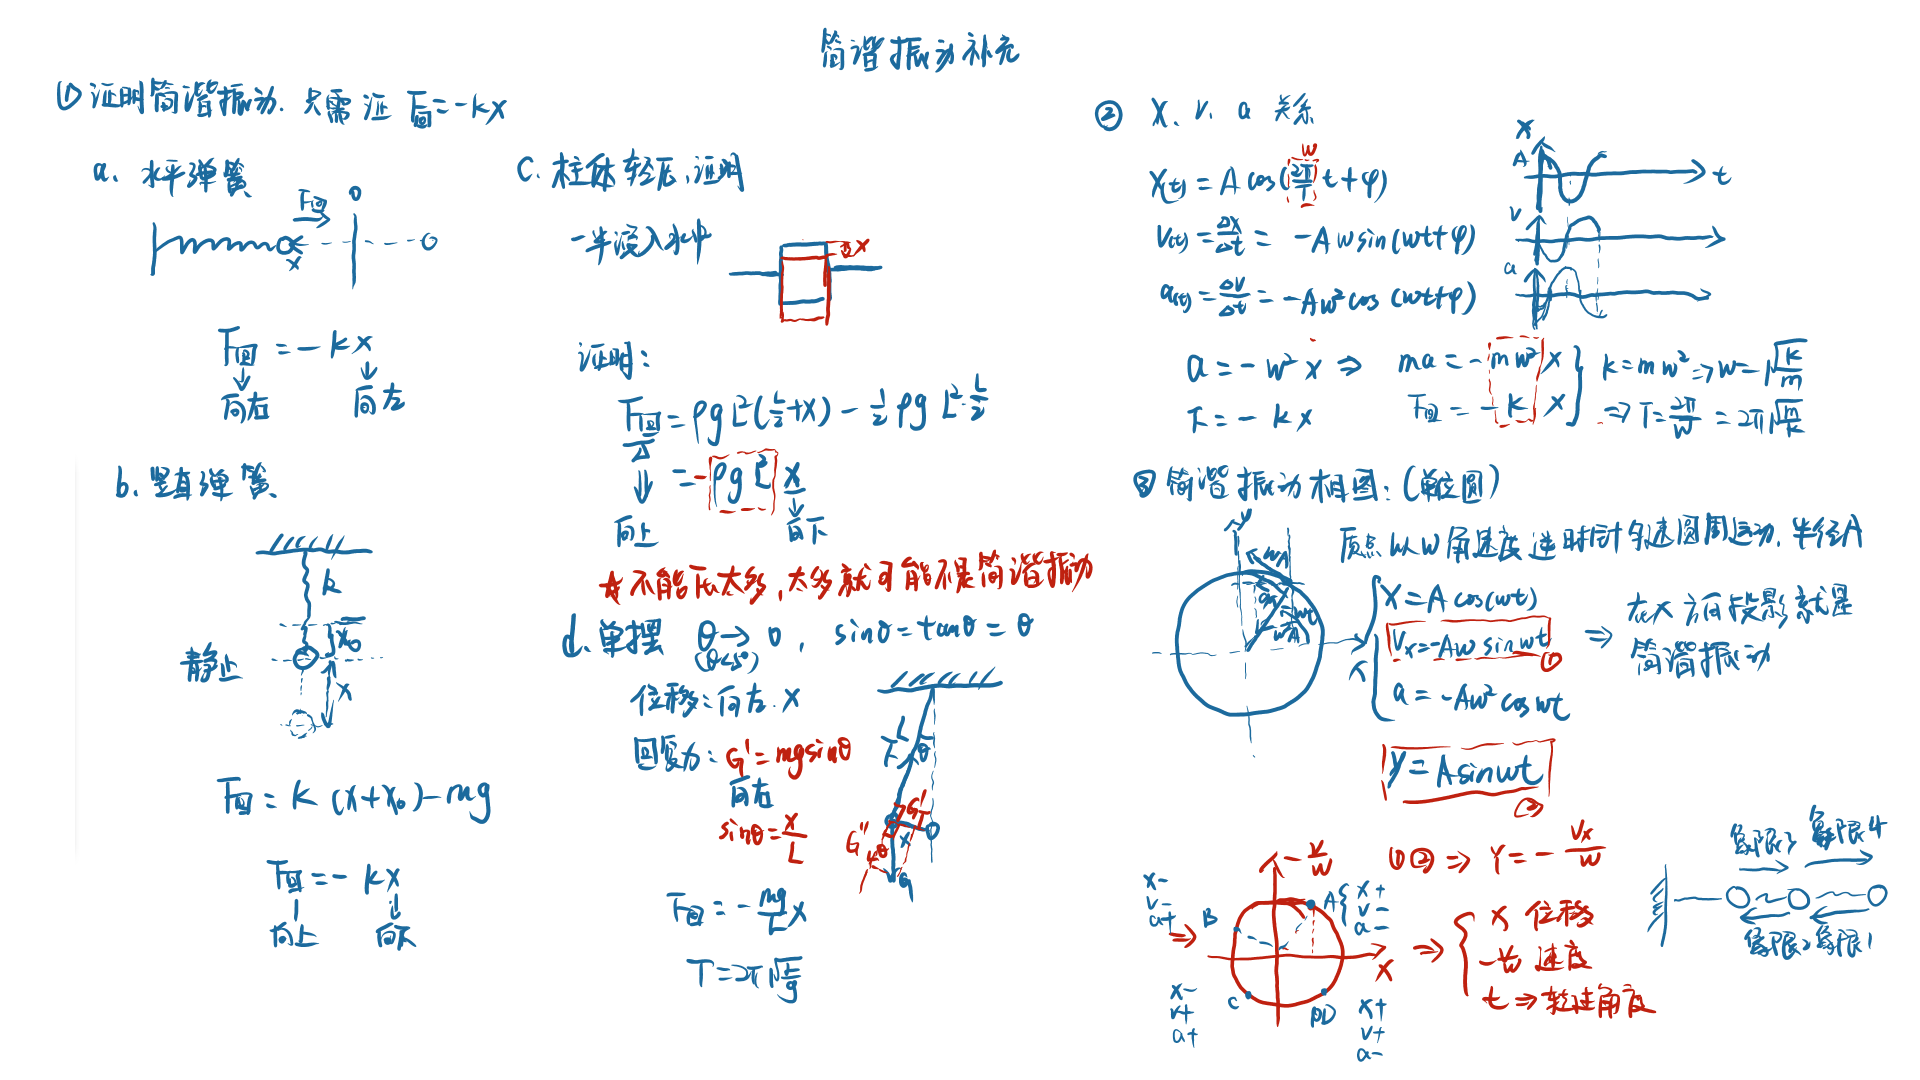 简谐振动补充
① 证明简谐振动. 只需证 F回=-kx
a. 水平弹簧
F回
O
x
F回 = -kx
向右
向左
b. 竖直弹簧
k
x₀
静止
x
F回 = k(x+x₀)-mg
F回=-kx
向上
向下
c. 柱体轻压,证明
一半浸入水中
x
证明:
F回=ρgL²(L/2+x) - 1/2ρgL²·L/2
=-ρgL²x
向上
向下
☆不能压太多,太多就可能不是简谐振动
d. 单摆 θ→0, sinθ=tanθ=θ
(θ<5°)
位移:向左.x
回复力:G'=mgsinθ
向右
sinθ=x/L
L
T
θ
G'
x
G''
θ
G
F回=-mg/L x
T=2π√L/g
② x. v. a 关系
x(t) = A cos(2π/T t+φ)
w
v(t) = Δx/Δt = -Aw sin(wt+φ)
a(t) = Δv/Δt = -Aw² cos(wt+φ)
x
A
t
v
a
a = -w²x ⇒ ma = -mw²x
F = -kx
F回 = -kx
k=mw² ⇒ w=√k/m
⇒ T=2π/w = 2π√m/k
③ 简谐振动相图:(单位圆)
质点以w角速度逆时针匀速圆周运动,半径A
y
wA
wt
x
x=A cos(wt)
Vx=-Aw sinwt
①
a=-Aw² coswt
⇒ 在x方向投影就是
简谐振动
y=Asinwt
②
①② ⇒ y=-Vx/w
-v/w
x
A
x+
v-
a-
B
x-
v-
a+
C
x-
v+
a+
D
x+
v+
a-
⇒
⇒
x 位移
-v/w 速度
t ⇒ 转过角度
象限3 象限4
象限2 象限1